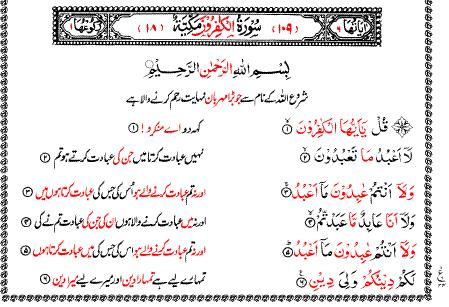 اٰیَاتُهَا ٦ (۱۰۹) سُوْرَةُ الْكٰفِرُوْنَ مَكِّیَّةٌ (۱۸) رُكُوْعُهَا ۱
بِسْمِ اللهِ الرَّحْمٰنِ الرَّحِیْمِ
شروع اللہ کے نام سے جو بڑا مہربان نہایت رحم کرنے والا ہے
قُلْ یٰۤاَیُّهَا الْكٰفِرُوْنَ ۱ کہہ دو اے منکرو! ۱
لَاۤ اَعْبُدُ مَا تَعْبُدُوْنَ ۲ نہیں عبادت کرتا میں جن کی عبادت کرتے ہو تم ۲
وَلَاۤ اَنْتُمْ عٰبِدُوْنَ مَاۤ اَعْبُدُ ۳ اور نہ تم عبادت کرنے والے ہو اس کی جس کی عبادت کرتا ہوں میں ۳
وَلَاۤ اَنَا عَابِدٌ مَّا عَبَدْتُّمْ ۴ اور نہ میں عبادت کرنے والا ہوں ان کی جن کی عبادت تم نے کی ۴
وَلَاۤ اَنْتُمْ عٰبِدُوْنَ مَاۤ اَعْبُدُ ۵ اور نہ تم عبادت کرنے والے ہو اس کی جس کی میں عبادت کرتا ہوں ۵
لَكُمْ دِیْنُكُمْ وَلِیَ دِیْنِ ۶ تمہارے لیے ہے تمہارا دین اور میرے لیے میرا دین ۶